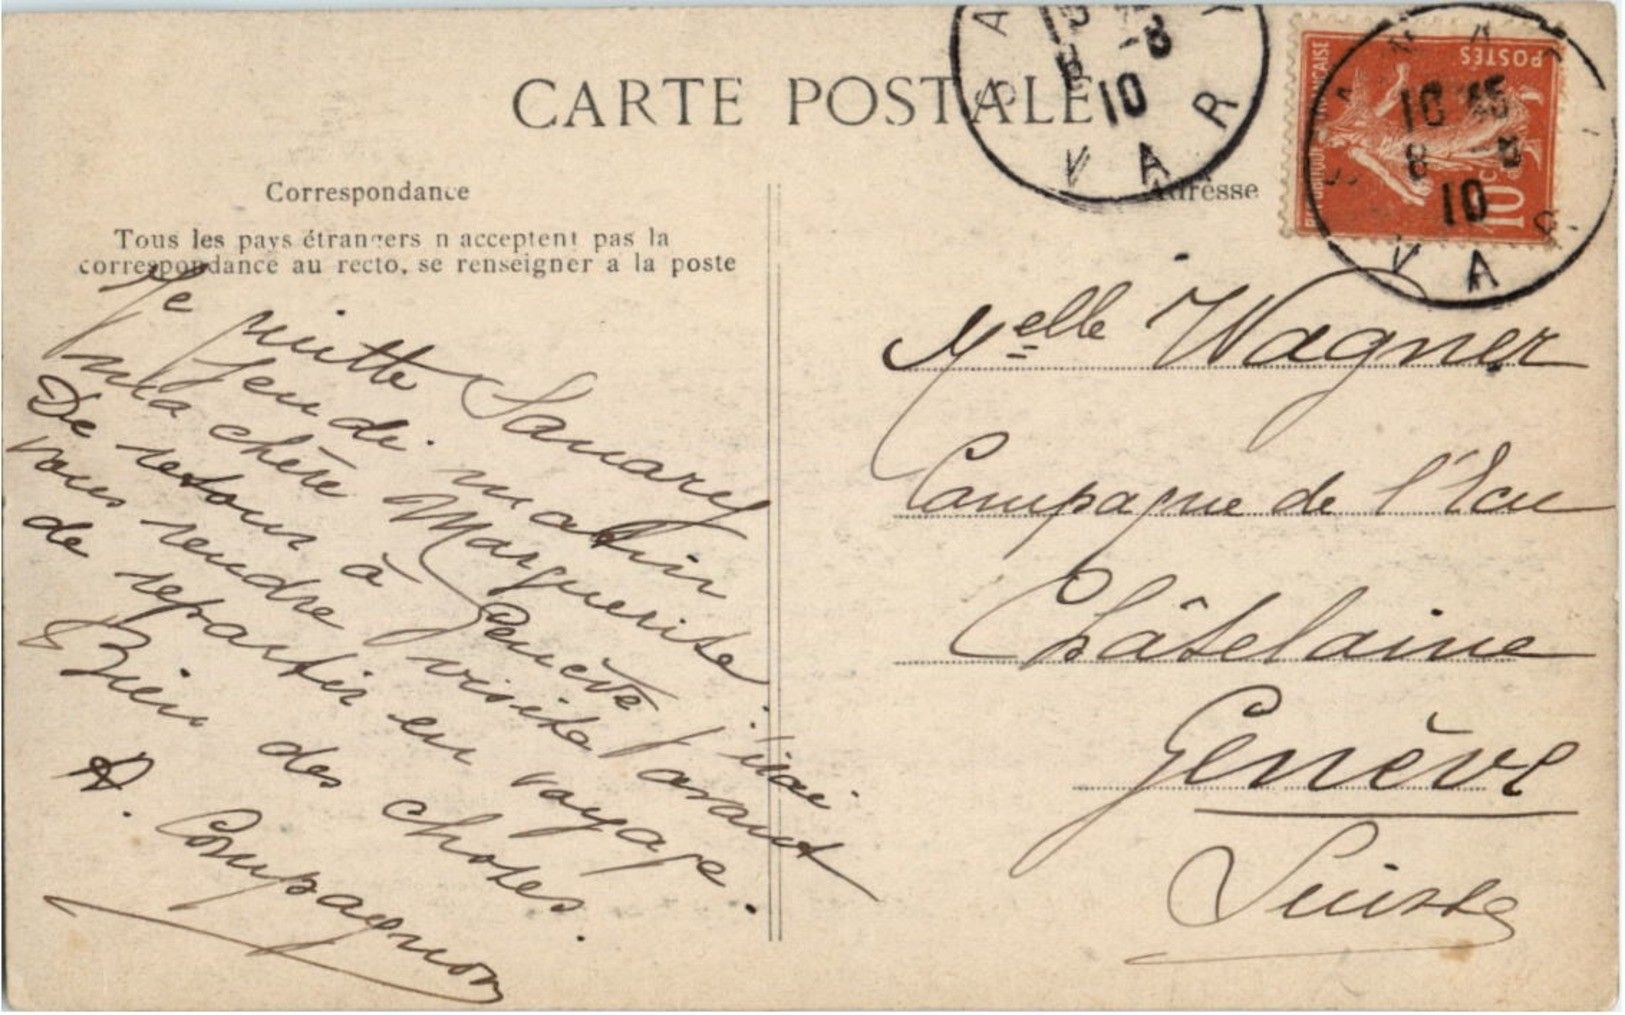 CARTE POSTALE
Correspondance
Tous les pays étrangers n acceptent pas la
correspondance au recto, se renseigner a la poste
Je quitte Sanary
Jeudi matin
ma chère Marguerite
De retour à Genève j'irai
vous rendre visite avant
de repartir en voyage.
Bien des choses.
A. Compagnon
SANARY
8 -8
10
VAR
Adresse
REPUBLIQUE FRANÇAISE
POSTES
10 c
SANARY
10 45
8 -8
10
VAR
Melle Wagner
Campagne de l'Ecu
Châtelaine
Genève
Suisse